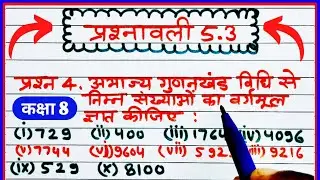 प्रश्नावली 5.3
प्रश्न 4. अभाज्य गुणनखंड विधि से
कक्षा 8 निम्न संख्याओं का वर्गमूल
ज्ञात कीजिए :
(i) 729 (ii) 400 (iii) 1764 (iv) 4096
(v) 7744 (vi) 9604 (vii) 592 9216
(ix) 529 (x) 8100